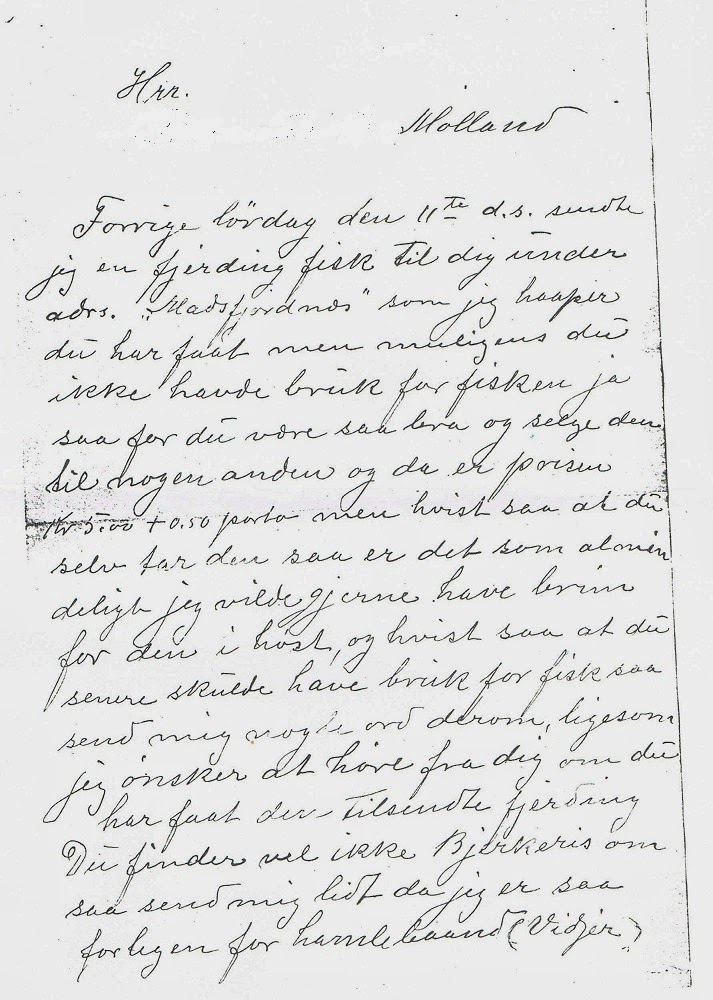 Hrr.
Molland
Forrige lördag den 11te d.s. sendte
jeg en fjerding fisk til dig under
adrs. „Madsfjordnæs" som jeg haaper
du har faat men muligens du
ikke havde bruk for fisken ja
saa for du være saa bra og selge den
til nogen anden og da er prisen
Kr 5.00 + 0.50 porto men hvist saa at du
selv tar den saa er det som almin
deligt jeg vilde gjerne have brim
for den i høst, og hvist saa at du
senere skulde have bruk for fisk saa
send mig nogle ord derom, ligesom
jeg önsker at høre fra dig om du
har faat den tilsendte fjerding
Du finder vel ikke Bjerkeris om
saa send mig lidt da jeg er saa
forlegen for hamlebaand (Vidjer)